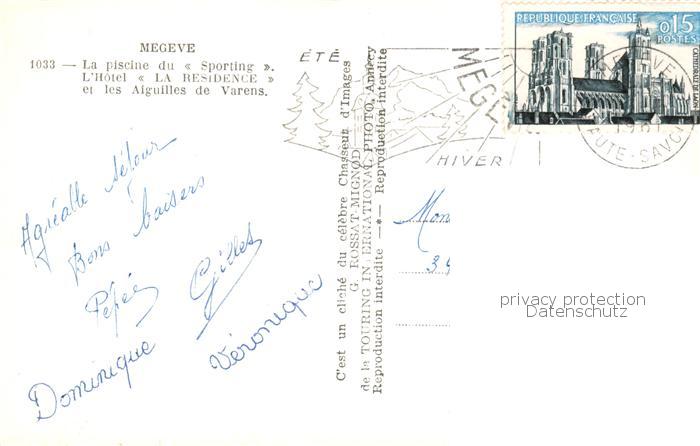 MEGEVE
1033 — La piscine du « Sporting ».
L'Hôtel « LA RESIDENCE »
et les Aiguilles de Varens.
Agréable Séjour
Bons baisers
Pépée
Gilles
Dominique
Véronique
C'est un cliché du célèbre Chasseur d'Images
G. ROSSAT-MIGNOD
de la TOURING INTERNATIONAL PHOTO, Annecy
Reproduction interdite —*— Reproduction interdite
ÉTÉ
MEGÈVE
HIVER
REPUBLIQUE FRANÇAISE
0,15
POSTES
CATHEDRALE DE LAON
HAUTE-SAVOIE
Mon
privacy protection
Datenschutz